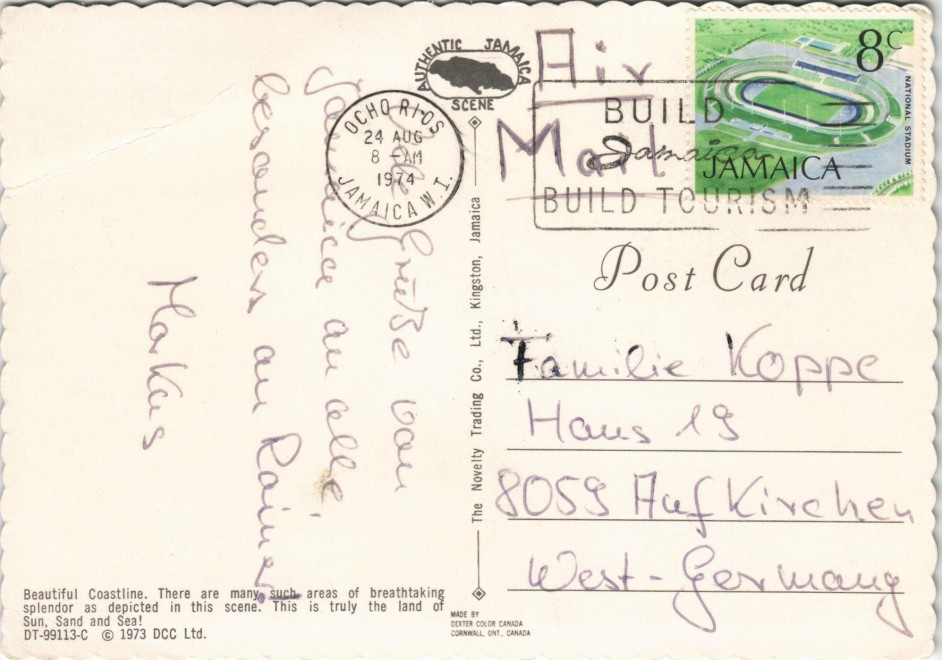 AUTHENTIC JAMAICA
SCENE
OCHO RIOS
24 AUG
8 - AM
1974
JAMAICA W.I.
Air
Mail
BUILD
Jamaica
BUILD TOURISM
8c
NATIONAL STADIUM
JAMAICA
Post Card
Grüße von
Jamaica an alle,
besonders an Rainer.
Markus
The Novelty Trading Co., Ltd., Kingston, Jamaica
Familie Koppe
Haus 19
8059 Aufkirchen
West-Germany
Beautiful Coastline. There are many such areas of breathtaking
splendor as depicted in this scene. This is truly the land of
Sun, Sand and Sea!
DT-99113-C © 1973 DCC Ltd.
MADE BY
DEXTER COLOR CANADA
CORNWALL, ONT., CANADA